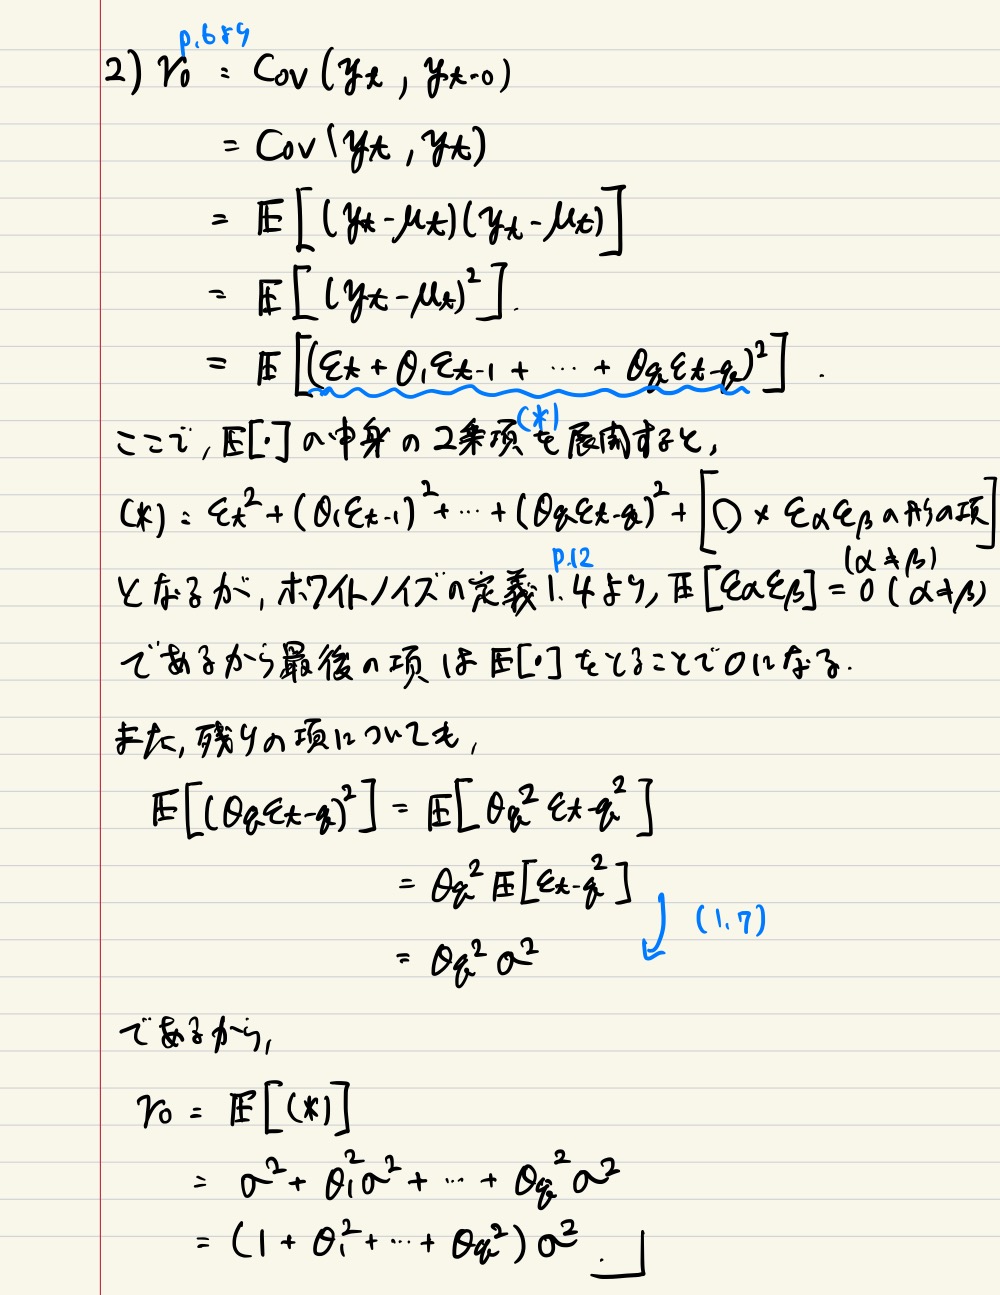 p.6より
2) γ₀ = Cov(yt, yt-0)
= Cov(yt, yt)
= 𝔼[(yt-μt)(yt-μt)]
= 𝔼[(yt-μt)²].
= 𝔼[(εt + θ₁εt-1 + … + θqεt-q)²].
(*)
ここで, 𝔼[・]の中身の2乗項を展開すると,
(*) = εt² + (θ₁εt-1)² + … + (θqεt-q)² + [○ × εαεβ の形の項]
(α≠β)
p.12
となるが, ホワイトノイズの定義1.4より, 𝔼[εαεβ] = 0 (α≠β)
であるから最後の項は 𝔼[・]をとることで0になる.
また, 残りの項についても,
𝔼[(θqεt-q)²] = 𝔼[θq² εt-q²]
= θq² 𝔼[εt-q²]
(1.7)
= θq² σ²
であるから,
γ₀ = 𝔼[(*)]
= σ² + θ₁²σ² + … + θq²σ²
= (1 + θ₁² + … + θq²)σ².